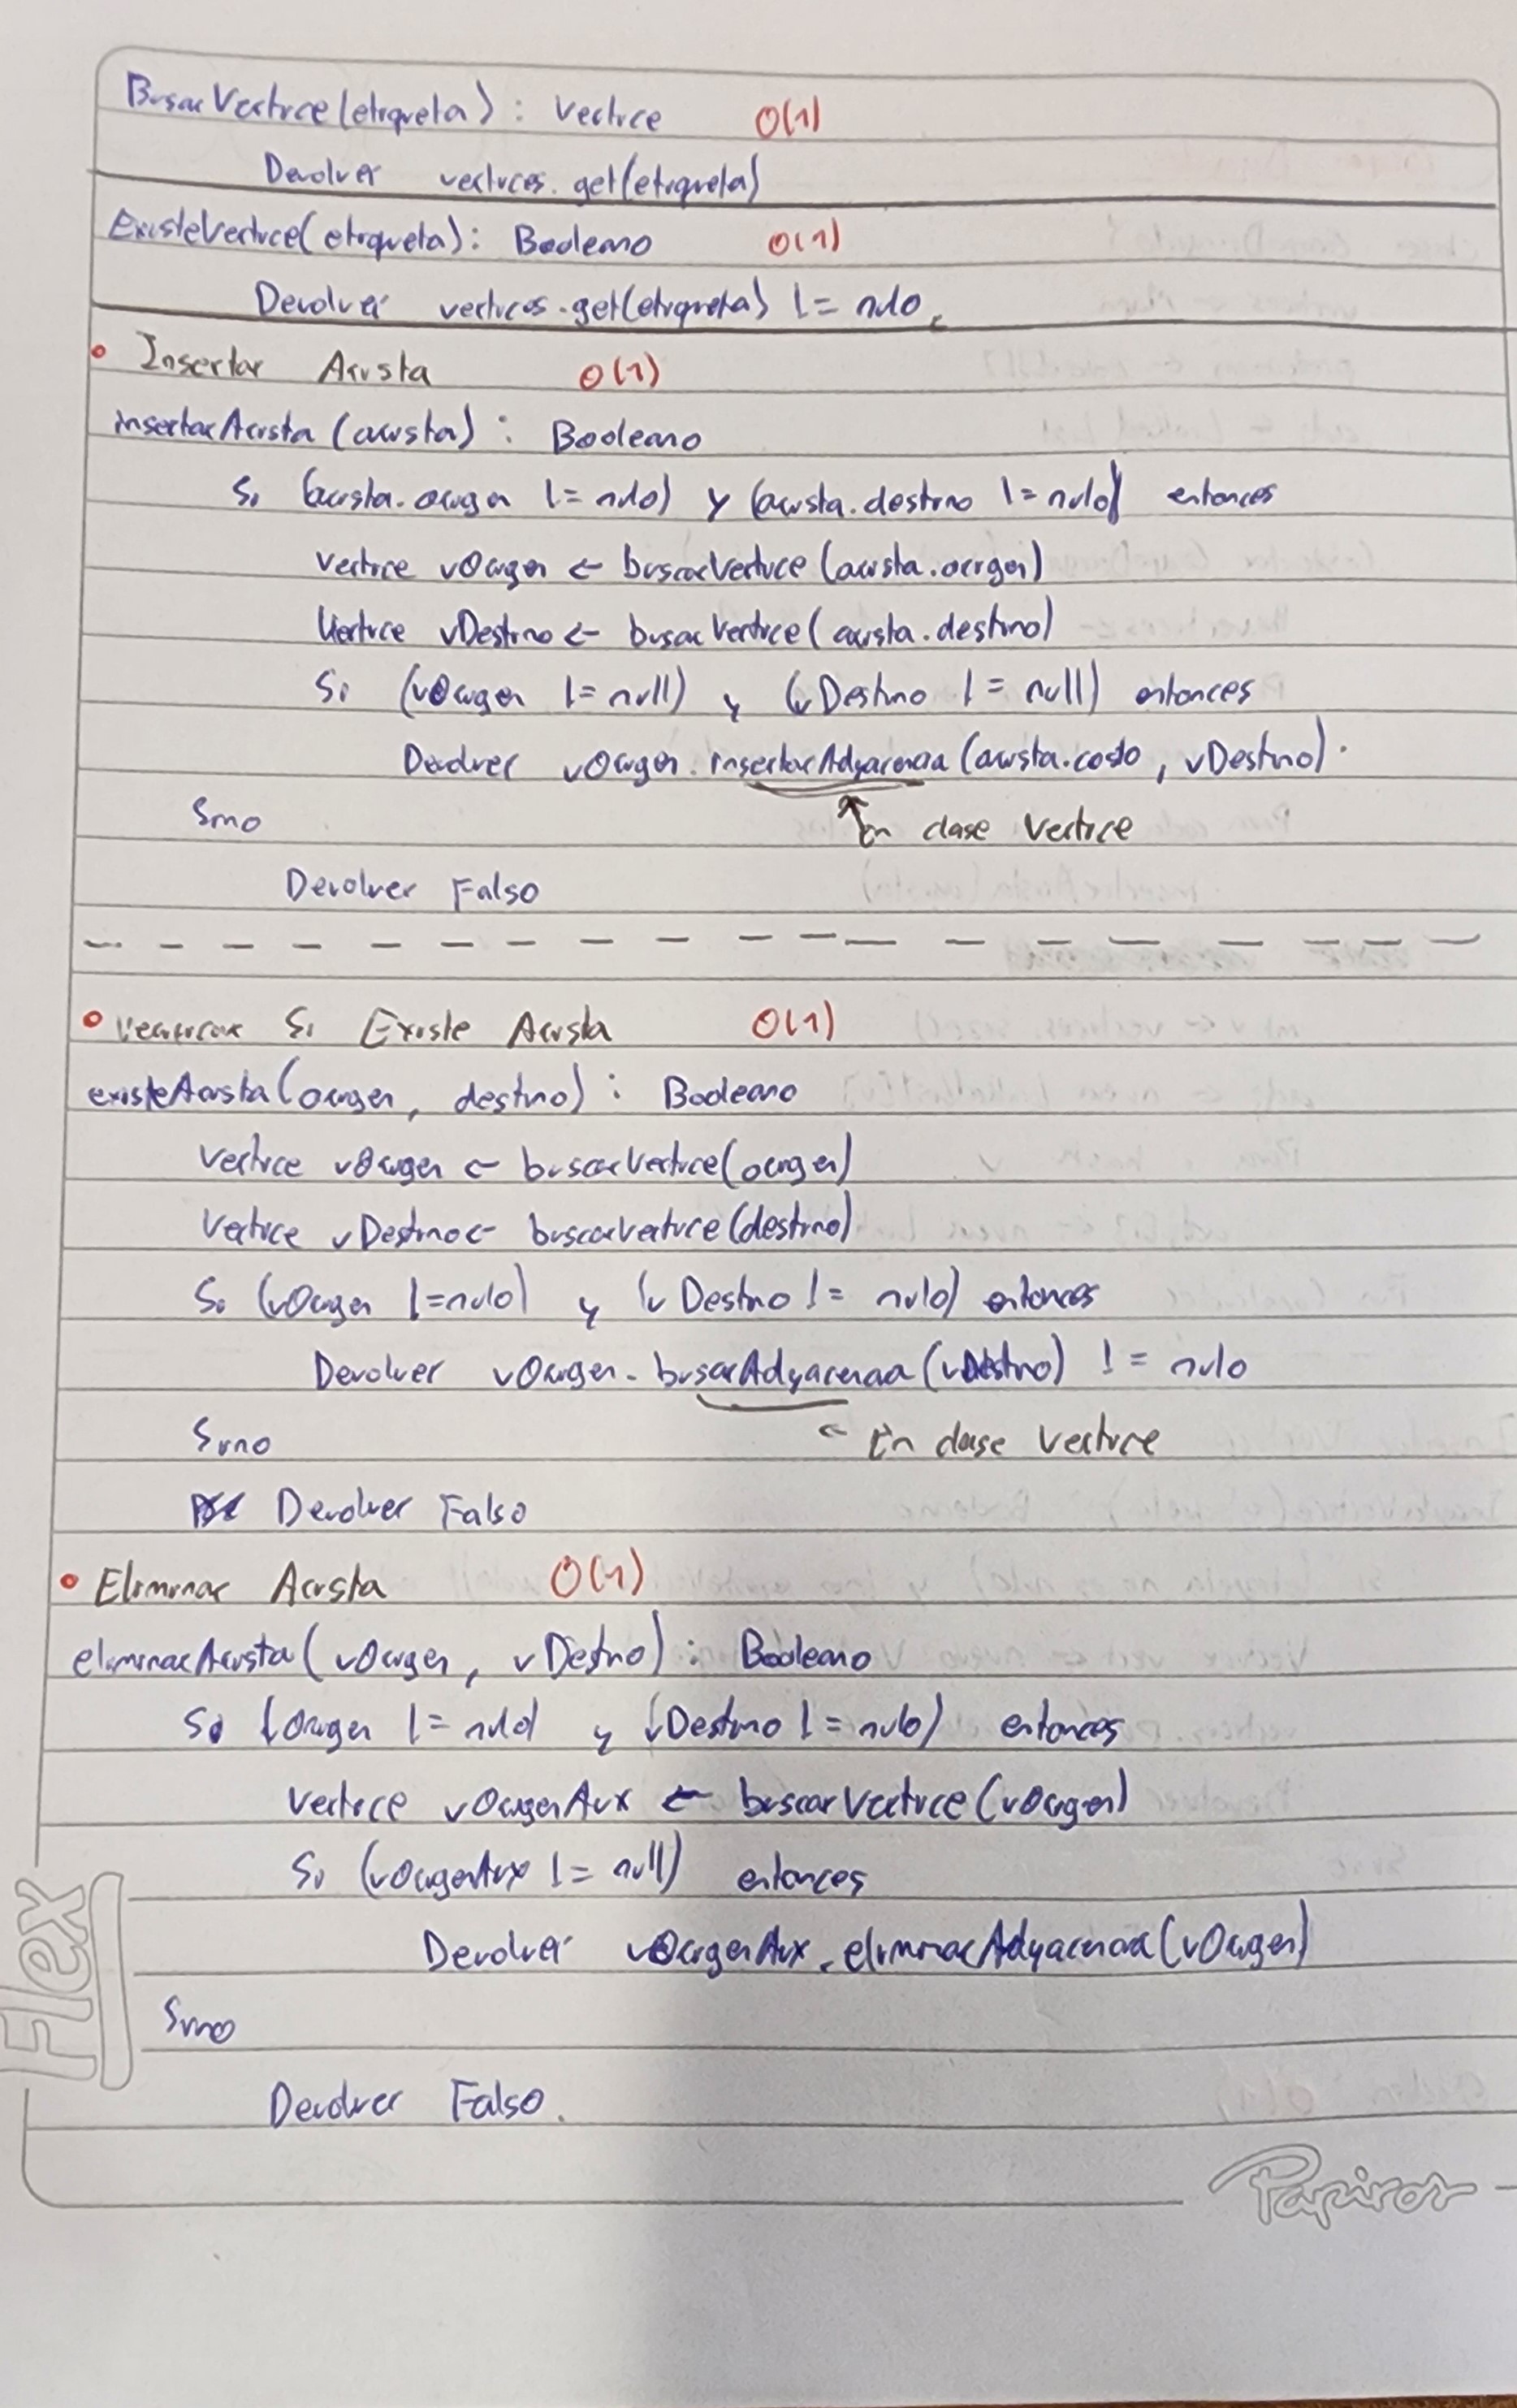 BuscarVertice(etiqueta) : Vertice O(1)
Devolver vertices.get(etiqueta)
ExisteVertice(etiqueta) : Booleano O(1)
Devolver vertices.get(etiqueta) != nulo.
• Insertar Arista O(1)
insertarArista(arista) : Booleano
Si (arista.origen != nulo) y (arista.destino != nulo) entonces
Vertice vOrigen ← buscarVertice(arista.origen)
Vertice vDestino ← buscarVertice(arista.destino)
Si (vOrigen != null) y (vDestino != null) entonces
Devolver vOrigen.insertarAdyacencia(arista.costo, vDestino).
Sino
En clase Vertice
Devolver Falso
• Verificar Si Existe Arista O(1)
existeArista(origen, destino) : Booleano
Vertice vOrigen ← buscarVertice(origen)
Vertice vDestino ← buscarVertice(destino)
Si (vOrigen != nulo) y (vDestino != nulo) entonces
Devolver vOrigen.buscarAdyacencia(vDestino) != nulo
Sino ← En clase Vertice
Devolver Falso
• Eliminar Arista O(1)
eliminarArista(vOrigen, vDestino) : Booleano
Si (Origen != nulo) y (Destino != nulo) entonces
Vertice vOrigenAux ← buscarVertice(vOrigen)
Si (vOrigenAux != null) entonces
Devolver vOrigenAux.eliminarAdyacencia(vOrigen)
Sino
Devolver Falso.
Flex
Papiros